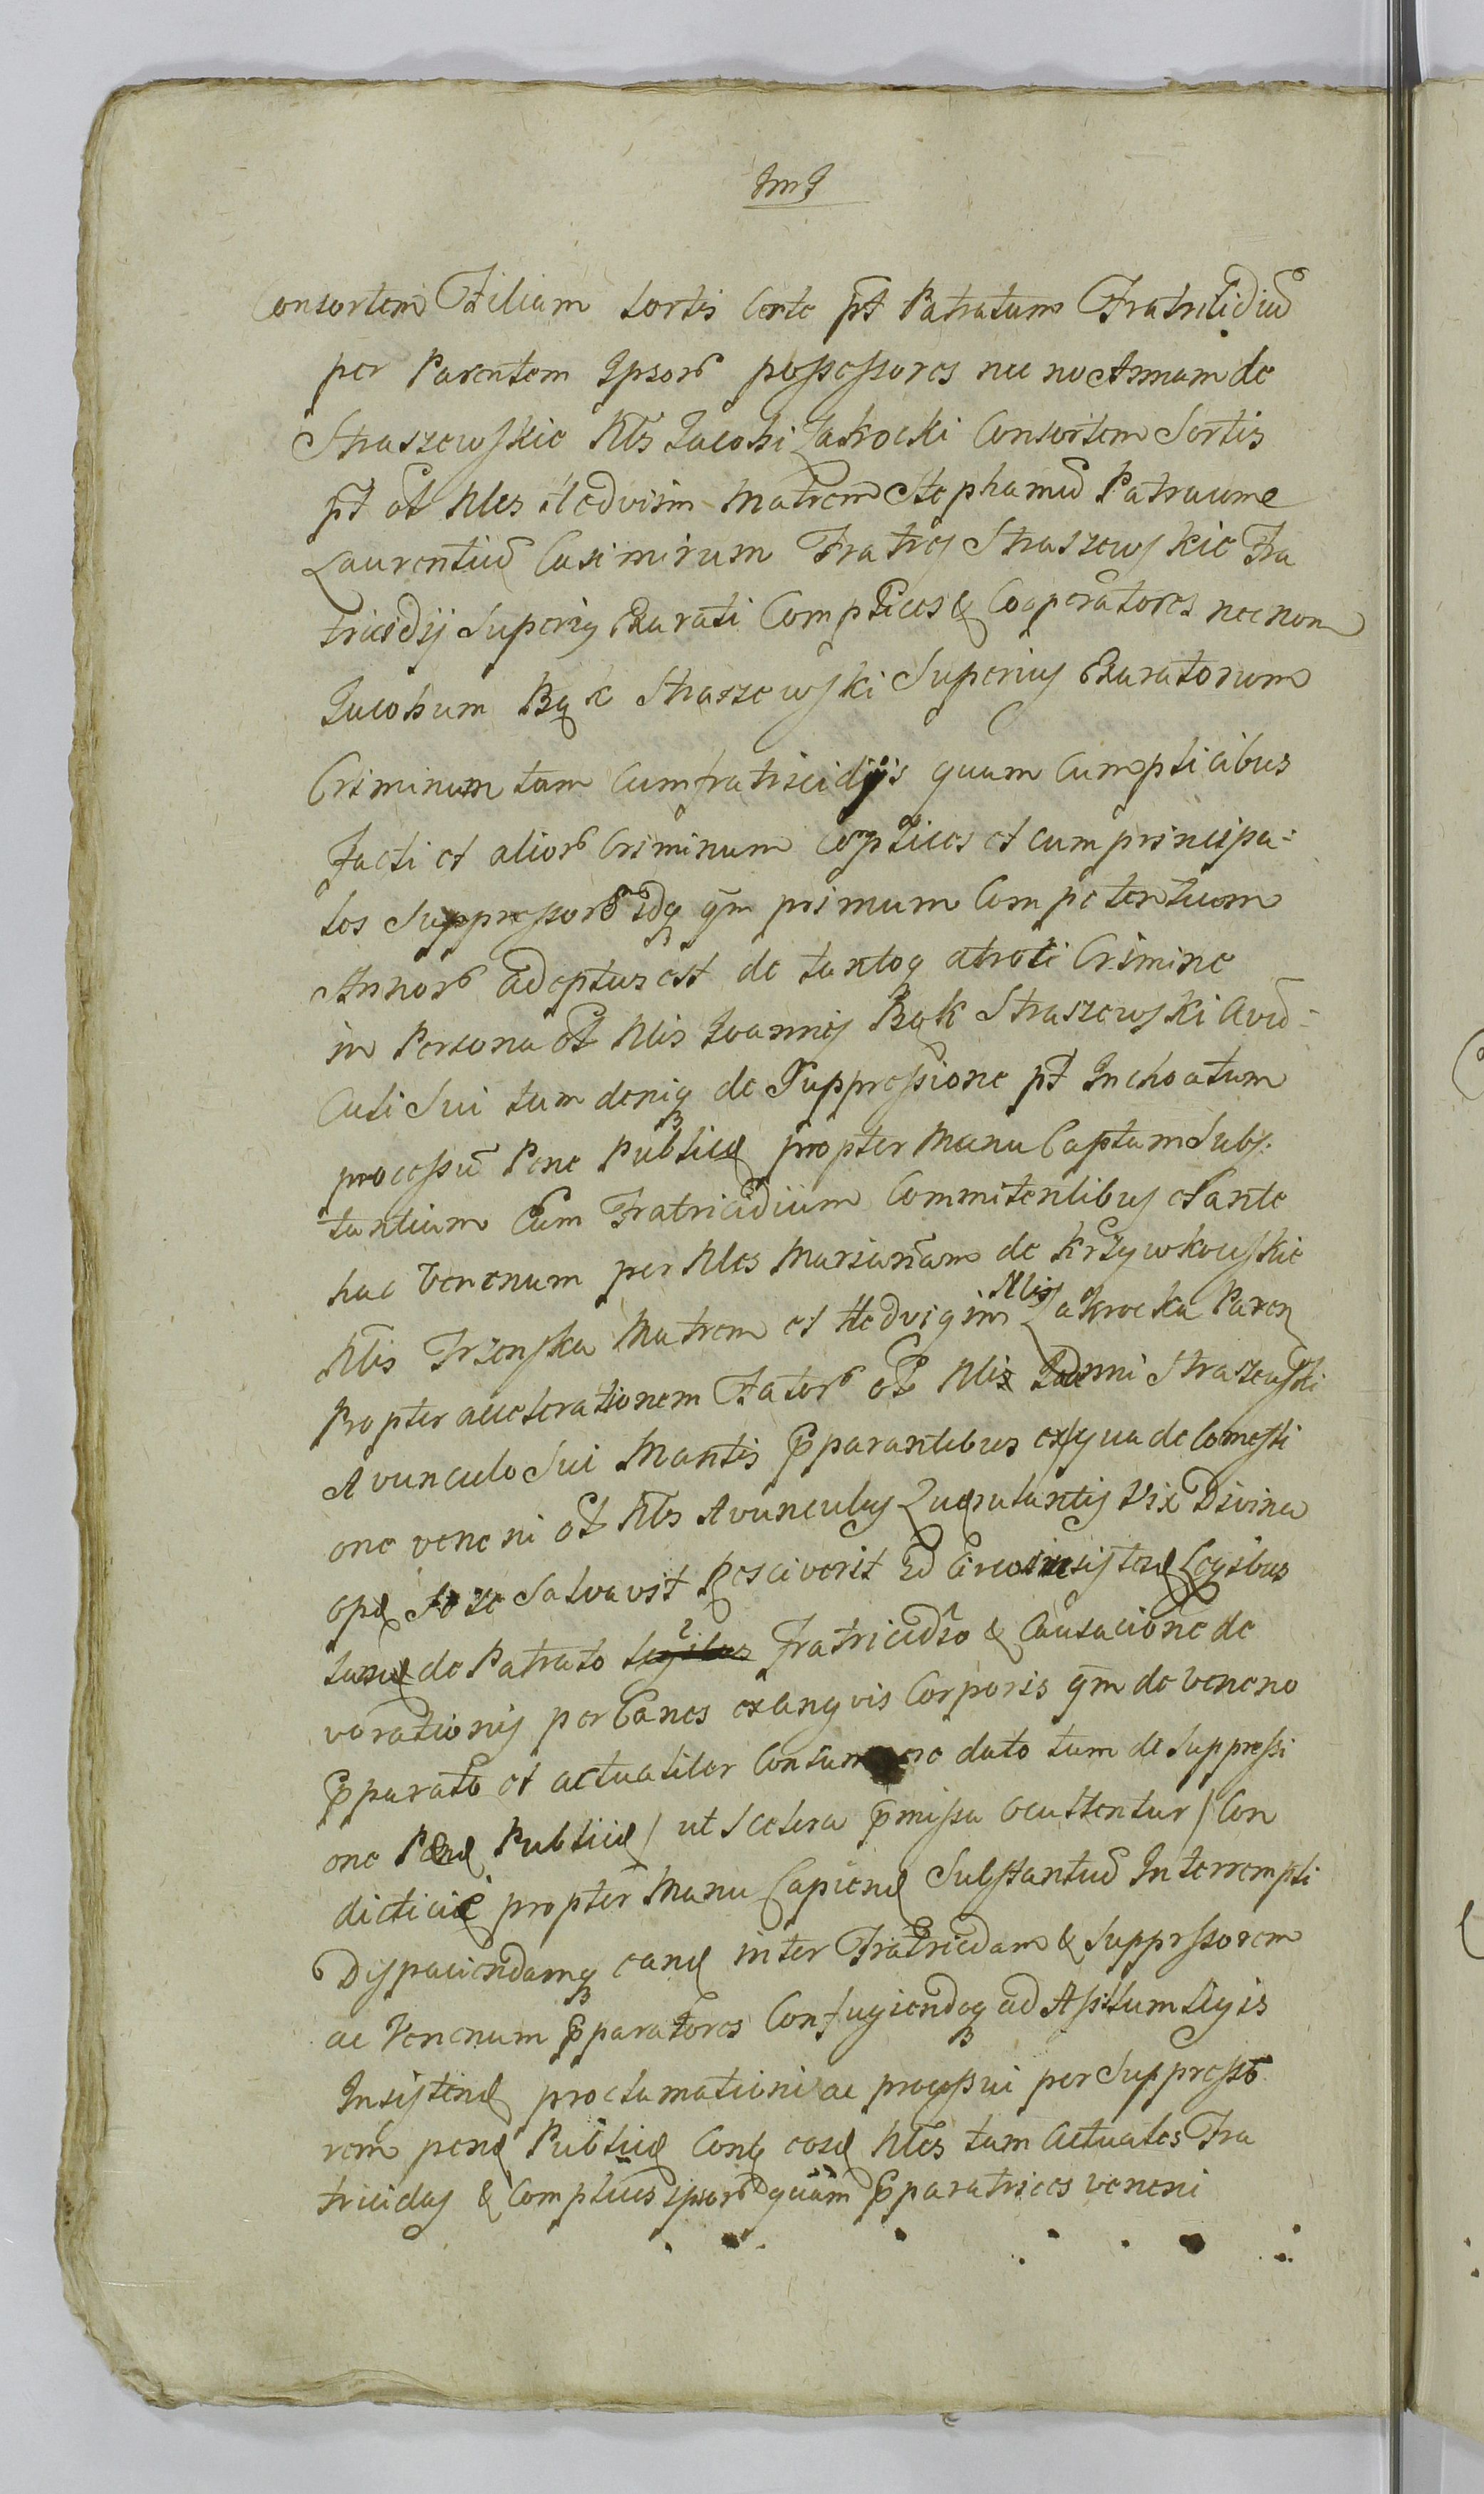 JmJ
Consortem Filiam Sortis certe pt Patratum Fratricidiũ
per Parentem Ipsorũ possessores nec no Annam de
Straszewskie Nlis Jacobi Zakrocki Consortem Sortis
pt ol Nles Hedvigim Matrem Stephanuũ Patraume
Laurentiũ Casimirum Fratres Straszewskie Fra
tricidij Superiq Exarati Complices & Cooperatores nec non
Jacobum Bąk Straszewski Superius Exaratorum
Criminum tam cum fratricidijs quam Cumplicibus
Facti et aliorũ Criminum Coplices et cum principa=
les Suppressorũ idq qm primum Competentium
Annorũ adeptus est de tantoq atroci Crimine
in Persona ol Nlis Joannis Bąk Straszewski Avũ=
Culi Sui tum deniq de Suppressione pt Inchoatum
processũ Pene Publice propter Manu Captam Subs:
tantiam Cum Fratricidium Commitentibus et ante
hac Venenum per Nles Mariañam de Krzywkowskie
Nlis Trzenska Matrem et Hedvigim Nlis Zakrocka Paren
Propter accelerationem Fatorũ ol Nlis Joanni Straszewski
Avunculo Sui Mantis Pparantibus ex qua de Comesti
one veneni ol Nls Avunculus Querulantis Vix Divina
ope Se se Salvavit Resciverit Ed Circa insistend Legibus
tand de Patrato legibus Fratricidio & Causacione de
vorationis per Canes exangvis Corporis qm de Veneno
Pparato et actualiter Consumere dato tum de Suppressi
one Pene Publice / ut Scelera pmissa occultentur / Con
dicticie propter Manu Capiend Substantiũ Interrempti
Dispaciendamq eand inter Fratricidam & Supprssorem
ac Venenum Pparatores Confugiendoq ad Assilum Legis
Insistend proclamationi ac processui per Suppresso
rem pene Publice Contq eosd Nles tam Actuales Fra
tricidas & Complices ipsorũ quam Pparatrices veneni